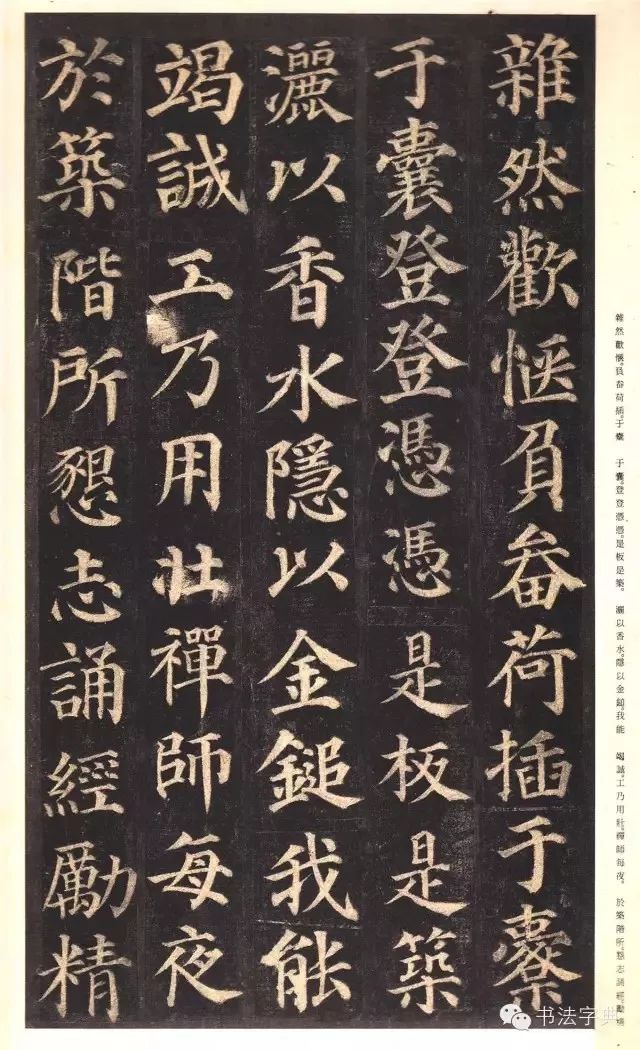 雜然歡愜負畚荷插于橐
于囊登登憑憑是板是築
灑以香水隱以金鎚我能
竭誠工乃用壯禪師每夜
於築階所懇志誦經勵精
雜然歡愜。負畚荷插。于橐 于囊。登登憑憑。是板是築。 灑以香水。隱以金鎚。我能 竭誠。工乃用壯。禪師每夜。 於築階所。懇志誦經。勵精
书法字典